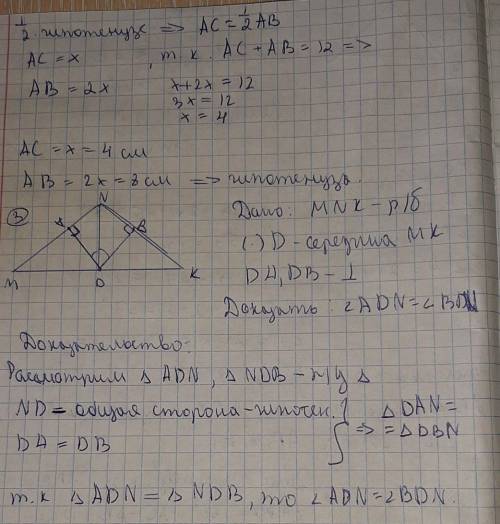 1/2 гипотенузе => AC = 1/2 AB
AC = x , т.к. AC + AB = 12 =>
AB = 2x x + 2x = 12
3x = 12
x = 4
AC = x = 4 см
AB = 2x = 8 см => гипотенуза.
③ N Дано: MNK - р/б
A B (.) D - середина MK
M D K DA, DB - ⊥
Доказать: ∠ADN = ∠BDN
Доказательство:
Рассмотрим △ ADN, △ NDB - п/у △
ND = общая сторона - гипотен. } △ DAN =
DA = DB => = △ DBN
т.к △ ADN = △ NDB, то ∠ADN = ∠BDN.